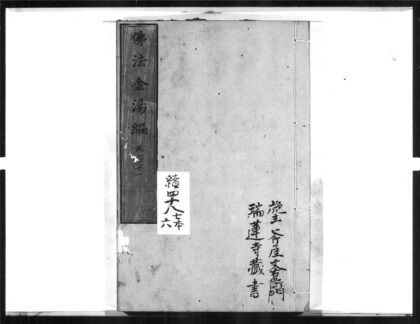 施主
瑞蓮寺藏書
佛法金湯編
續四十八
七本
六